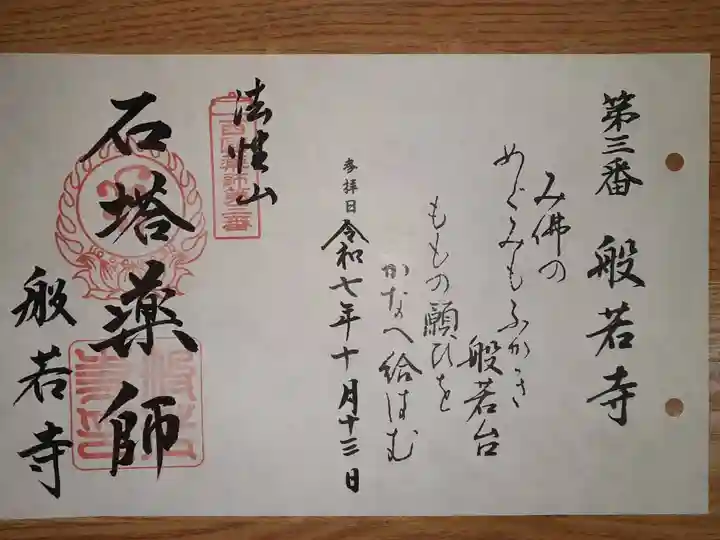 第三番 般若寺
み佛の
めぐみもふかき
般若台
ももの願ひを
かなへ給はむ
参拝日 令和七年十月十三日
法性山
石塔薬師
般若寺